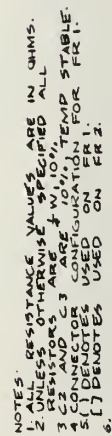 NOTES:
1. RESISTANCE VALUES ARE IN OHMS.
2. UNLESS OTHERWISE SPECIFIED ALL
RESISTORS ARE ½ W, 10%
3 C2 AND C3 ARE 10%, TEMP STABLE.
4 CONNECTOR CONFIGURATION FOR FR1.
5. ( ) DENOTES USED ON FR1.
6. [ ] DENOTES USED ON FR2.